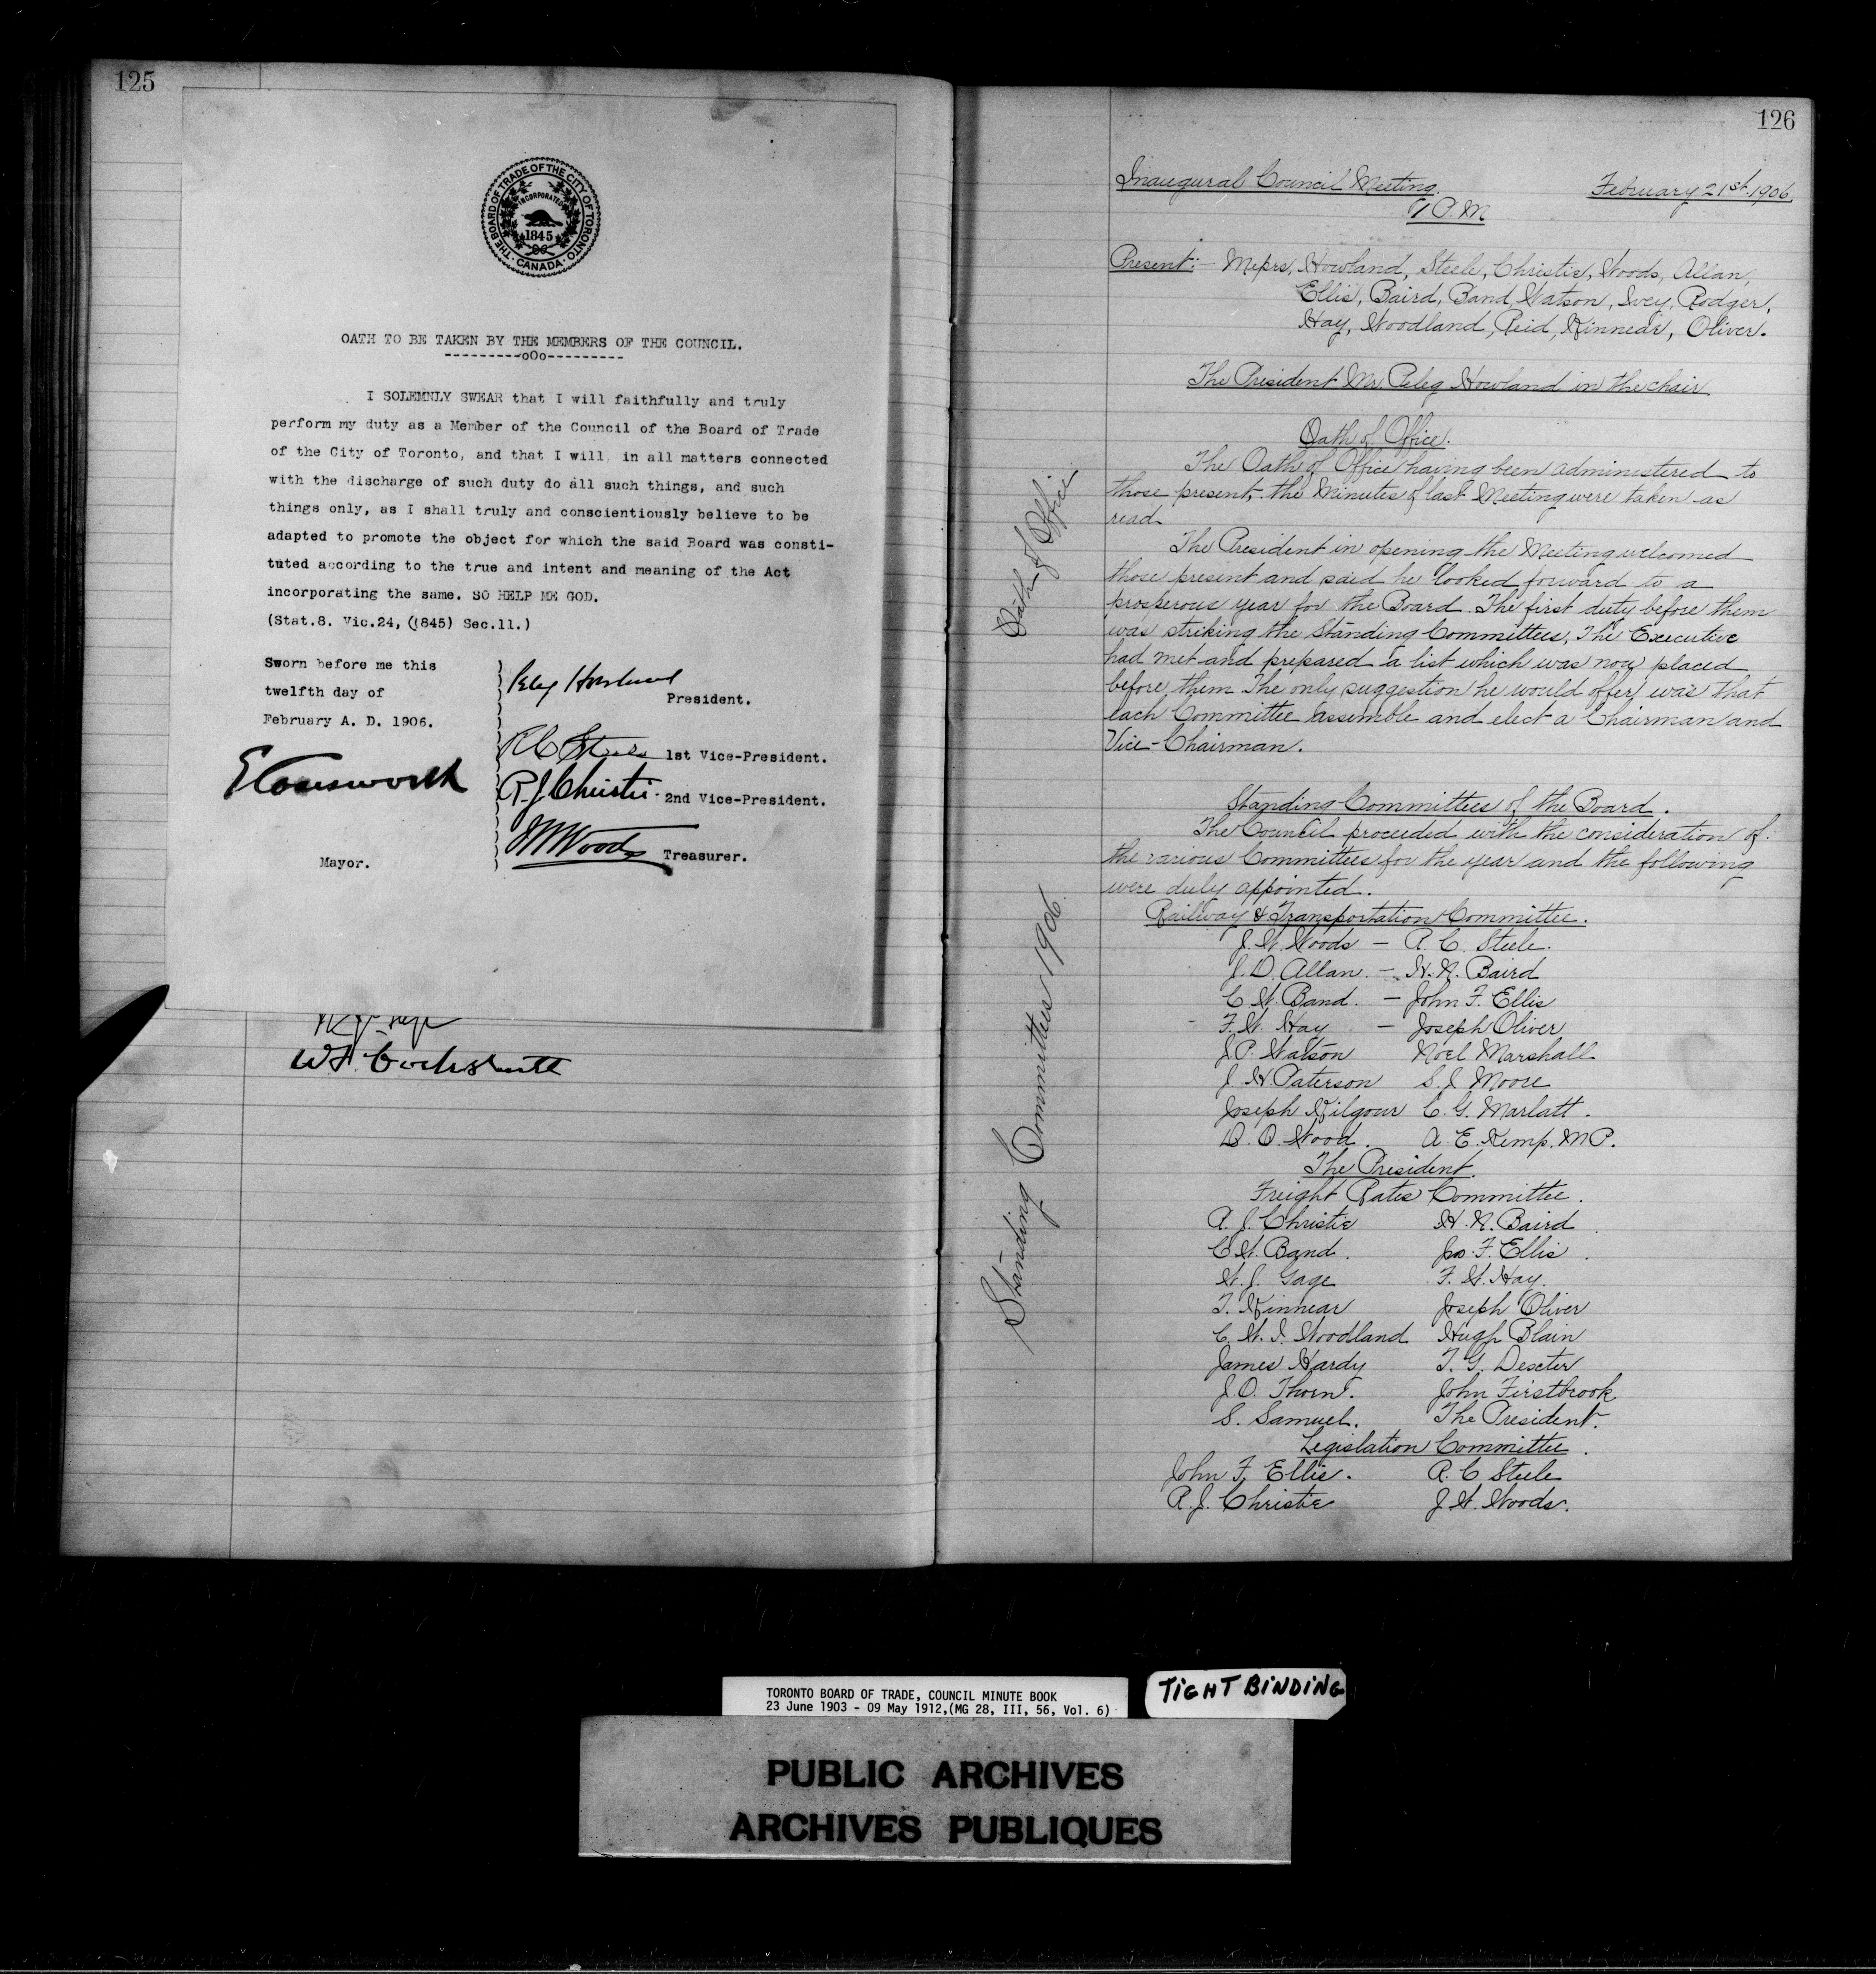 125
THE BOARD OF TRADE OF THE CITY OF TORONTO
INCORPORATED
1845
CANADA
OATH TO BE TAKEN BY THE MEMBERS OF THE COUNCIL.
---------oOo---------
I SOLEMNLY SWEAR that I will faithfully and truly
perform my duty as a Member of the Council of the Board of Trade
of the City of Toronto, and that I will, in all matters connected
with the discharge of such duty do all such things, and such
things only, as I shall truly and conscientiously believe to be
adapted to promote the object for which the said Board was consti-
tuted according to the true and intent and meaning of the Act
incorporating the same. SO HELP ME GOD.
(Stat.8. Vic.24, (1845) Sec.11.)
Sworn before me this
twelfth day of
February A. D. 1906.
Peleg Howland
President.
1st Vice-President.
R. J. Christie
2nd Vice-President.
J W Woods
Treasurer.
E Coatsworth
Mayor.
W. F. Cockshutt
126
Inaugural Council Meeting. February 21st. 1906.
P.M
Present:- Messrs, Howland, Steele, Christie, Woods, Allan,
Ellis, Baird, Band, Watson, Ivey, Rodger,
Hay, Woodland, Reid, Kinnear, Oliver.
The President Mr. Peleg Howland in the chair
Oath of Office.
The Oath of Office having been administered to
those present, the Minutes of last Meeting were taken as
read.
The President in opening the Meeting welcomed
those present and said he looked forward to a
prosperous year for the Board. The first duty before them
was striking the Standing Committees, The Executive
had met and prepared a list which was now placed
before them. The only suggestion he would offer was that
each Committee assemble and elect a Chairman and
Vice-Chairman.
Standing Committees of the Board.
The Council proceeded with the consideration of
the various Committees for the year and the following
were duly appointed.
Railway & Transportation Committee.
J. W. Woods - R. C. Steele.
J. D. Allan. - H. N. Baird
C. W. Band. - John F. Ellis
F. W. Hay - Joseph Oliver
J. P. Watson Noel Marshall
J. H. Paterson S. J. Moore
Joseph Kilgour C. G. Marlatt.
D. O. Wood. A. E. Kemp. M P.
The President.
Freight Rates Committee.
R. J. Christie H. N. Baird
C. W. Band. Jno. F. Ellis.
W. J. Gage F. W. Hay.
T. Kinnear Joseph Oliver
C. W. I. Woodland Hugh Blain
James Hardy T. G. Dexter
J. O. Thorn. John Firstbrook
S. Samuel. The President.
Legislation Committee.
John F. Ellis. R. C Steele
R. J. Christie J. W. Woods.
Oath of Office
Standing Committees 1906.
TORONTO BOARD OF TRADE, COUNCIL MINUTE BOOK
23 June 1903 - 09 May 1912,(MG 28, III, 56, Vol. 6)
TIGHT BINDING
PUBLIC ARCHIVES
ARCHIVES PUBLIQUES